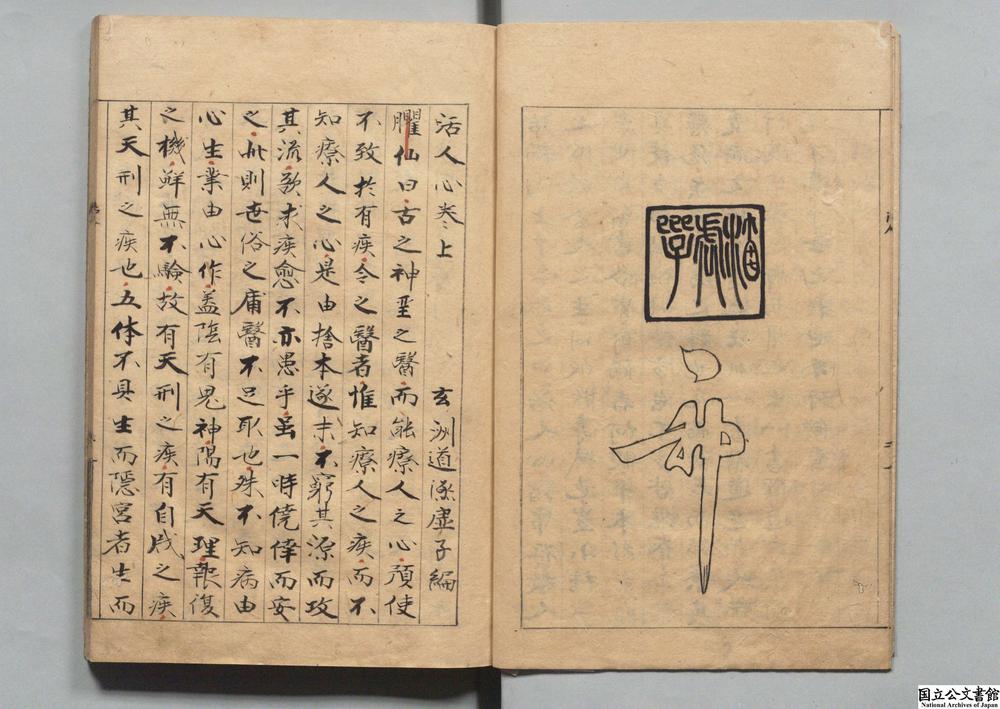 活人心卷上
玄洲道涵虛子編
臞仙曰古之神聖之醫而能療人之心預使
不致於有疾今之醫者惟知療人之疾而不
知療人之心是由捨本逐末不窮其源而攻
其流欲求疾愈不亦愚乎虽一時僥倖而安
之此則世俗之庸醫不足取也殊不知病由
心生業由心作盖陰有鬼神陽有天理報復
之機鮮無不驗故有天刑之疾有自戕之疾
其天刑之疾也五体不具生而隱宮者生而
国立公文書館
National Archives of Japan